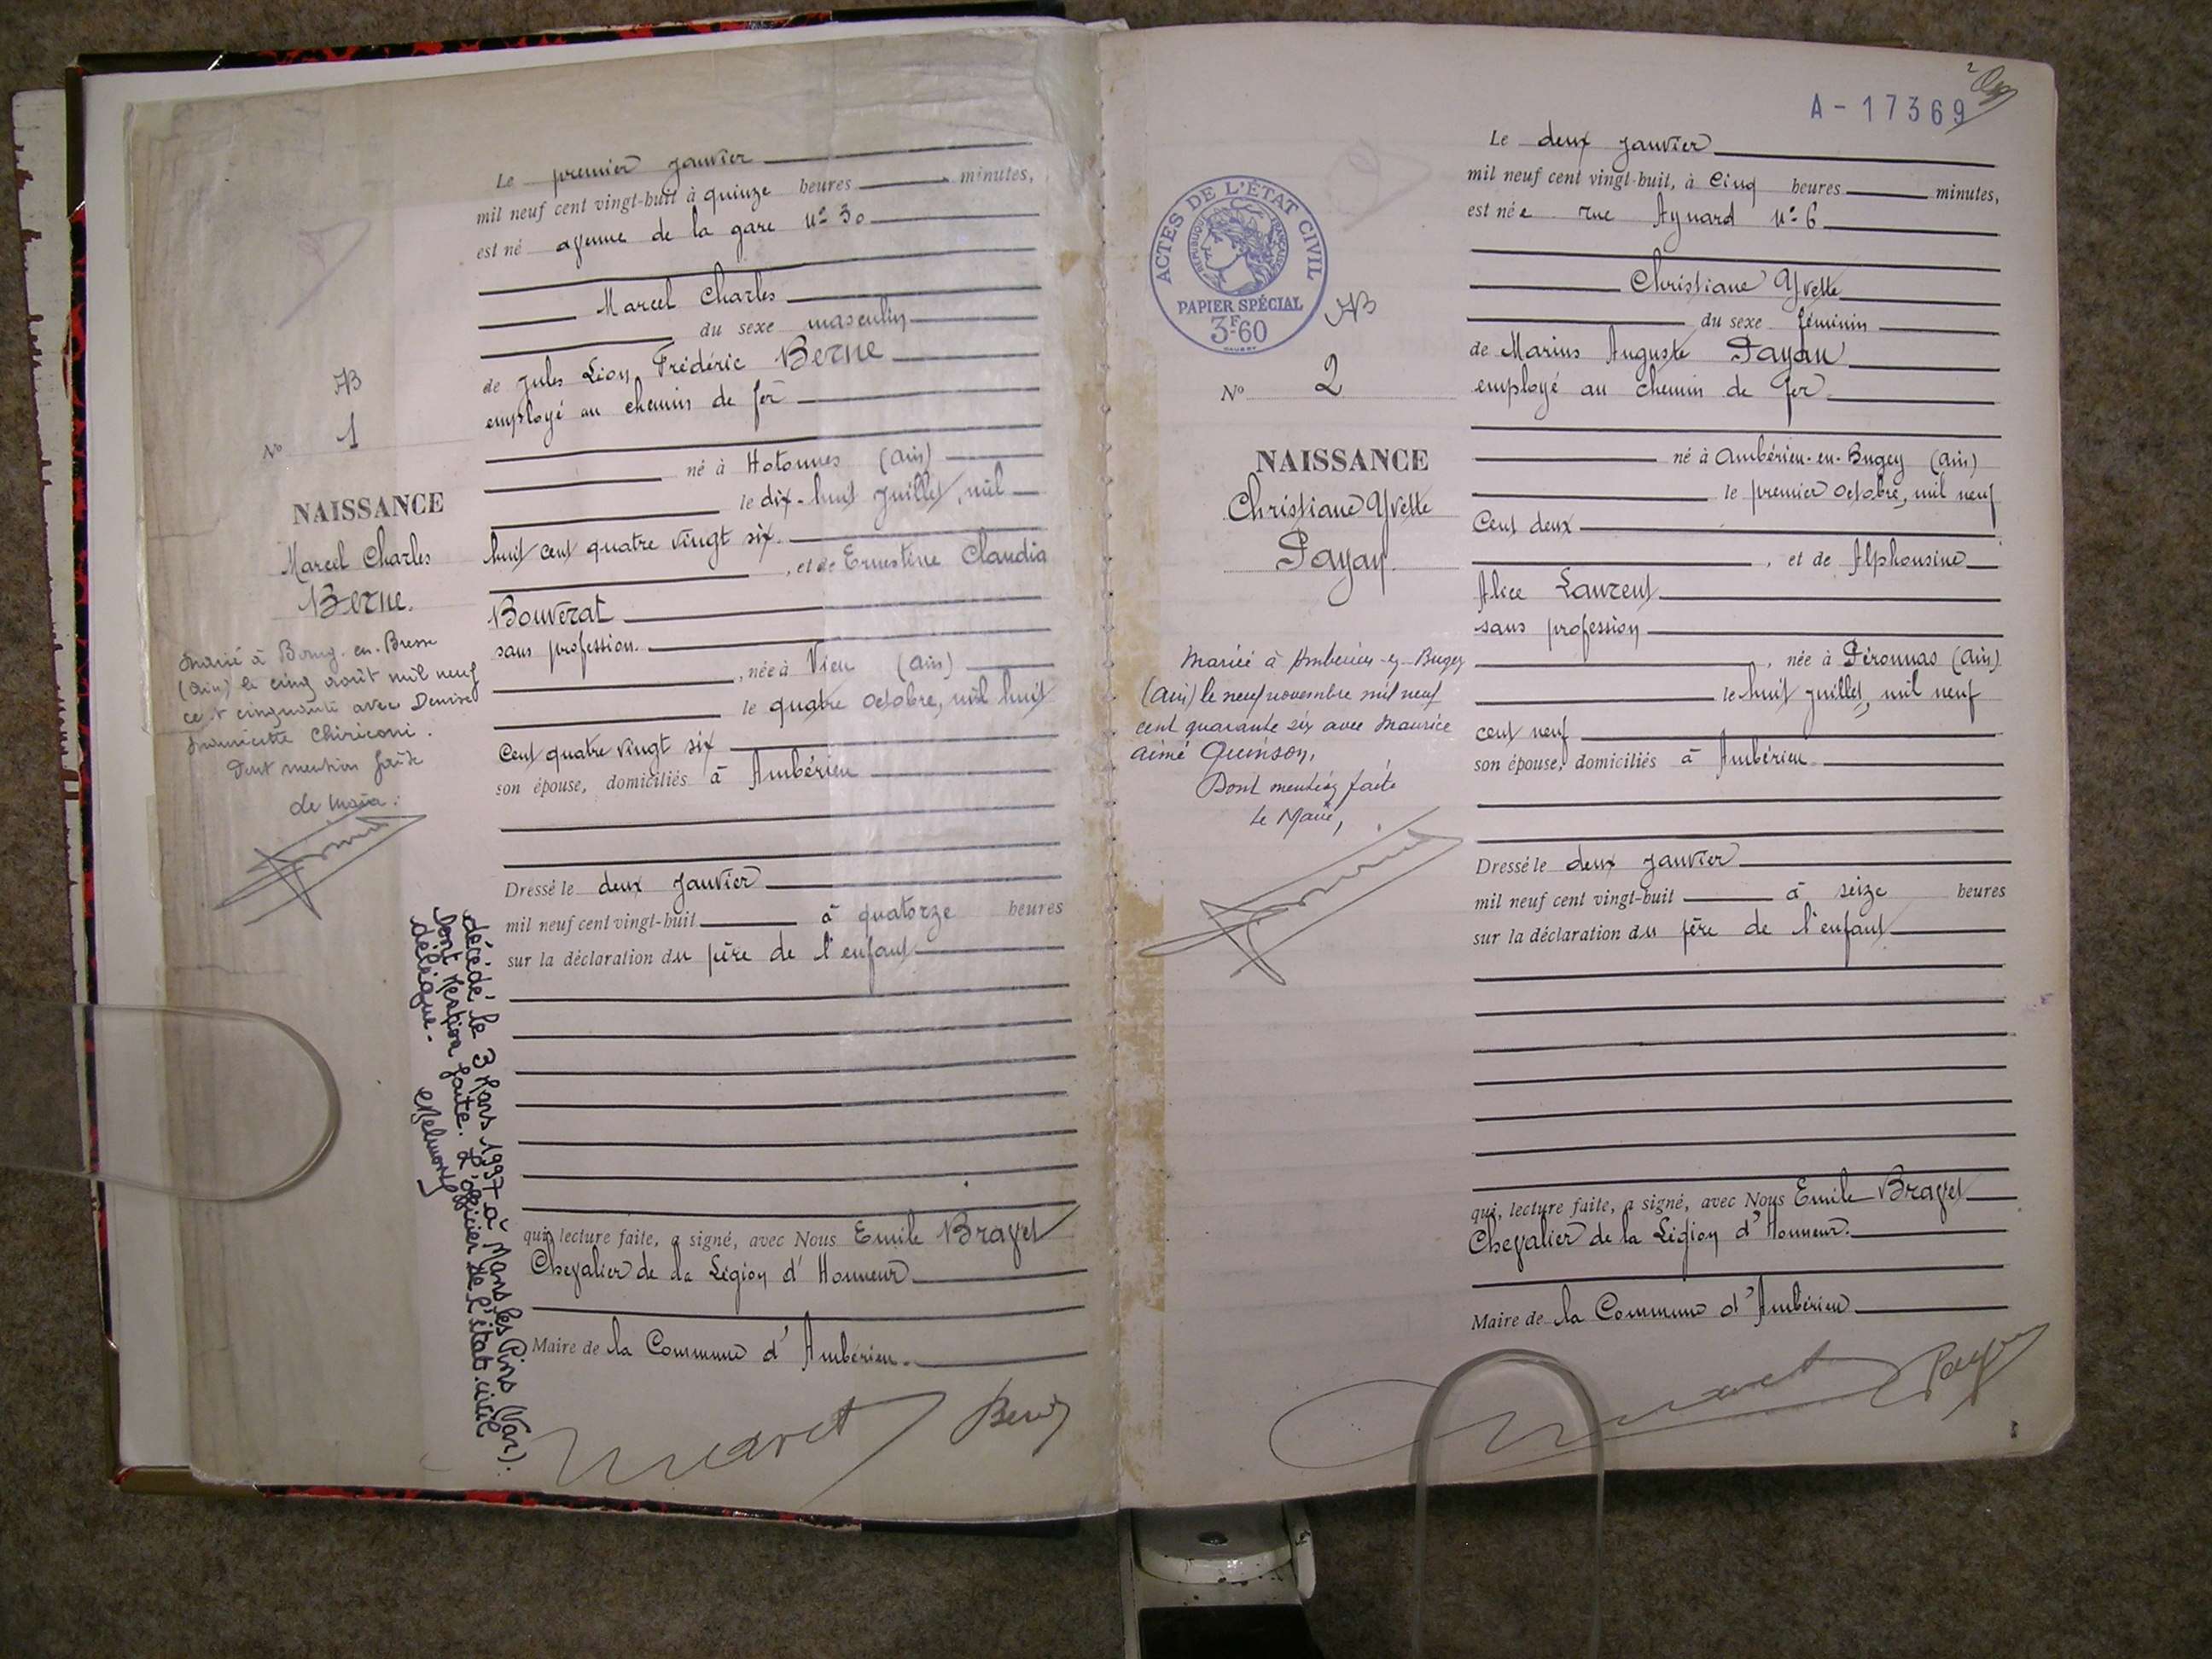 Le premier janvier
mil neuf cent vingt-huit à quinze heures minutes,
est né avenue de la gare n° 30
Marcel Charles
du sexe masculin
de Jules Léon Frédéric Berne
employé au chemin de fer
né à Hotonnes (Ain)
le dix-huit juillet, mil
huit cent quatre vingt six.
, et de Ernestine Claudia
Bouverat
sans profession.
, née à Vieu (Ain)
le quatre octobre, mil huit
cent quatre vingt six
son épouse, domiciliés à Ambérieu
Dressé le deux janvier
mil neuf cent vingt-huit à quatorze heures
sur la déclaration du père de l'enfant
qui, lecture faite, a signé, avec Nous Emile Bravet
Chevalier de la Légion d'Honneur
Maire de la Commune d'Ambérieu.
JB
N° 1
NAISSANCE
Marcel Charles
Berne.
Marié à Bourg-en-Bresse
(Ain) le cinq août mil neuf
cent cinquante avec Denise
Chiriconi.
Dont mention faite
décédé le 3 Mars 1997 à Nans les Pins (Var).
Dont Mention faite. L'officier de l'état-civil
délégué.
A-17369
2
Le deux janvier
mil neuf cent vingt-huit, à cinq heures minutes,
est née rue Aynard n° 6
Christiane Yvette
du sexe féminin
de Marius Auguste Payan
employé au chemin de fer
né à Ambérieu-en-Bugey (Ain)
le premier octobre, mil neuf
cent deux
, et de Alphonsine
Alice Laurent
sans profession
, née à Péronnas (Ain)
le huit juillet, mil neuf
cent neuf
son épouse, domiciliés à Ambérieu
Dressé le deux janvier
mil neuf cent vingt-huit à seize heures
sur la déclaration du père de l'enfant
qui, lecture faite, a signé, avec Nous Emile Bravet
Chevalier de la Légion d'Honneur.
Maire de la Commune d'Ambérieu
ACTES DE L'ÉTAT CIVIL
RÉPUBLIQUE FRANÇAISE
PAPIER SPÉCIAL
3F60
JB
N° 2
NAISSANCE
Christiane Yvette
Payan.
Mariée à Ambérieu-en-Bugey
(Ain) le neuf novembre mil neuf
cent quarante six avec Maurice
Aimé Quinson,
Dont mention faite
Le Maire,